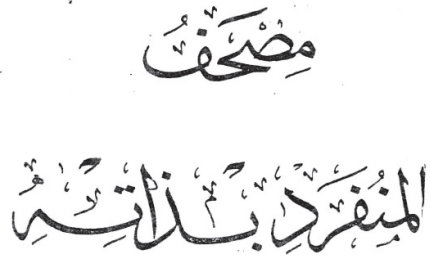 مِصْحَفُ
المُنْفَرَدِ بِذَاتِهِ